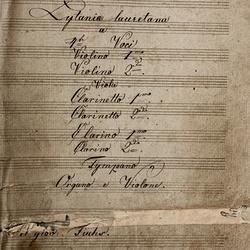 Lytaniae lauretanae
a
4tr Voci
Violino 1mo
Violino 2do
Viola
Clarinetto 1mo
Clarinetto 2do
Clarino 1mo
Clarino 2do
Tympano
Organo e Violone.
Fuchs.